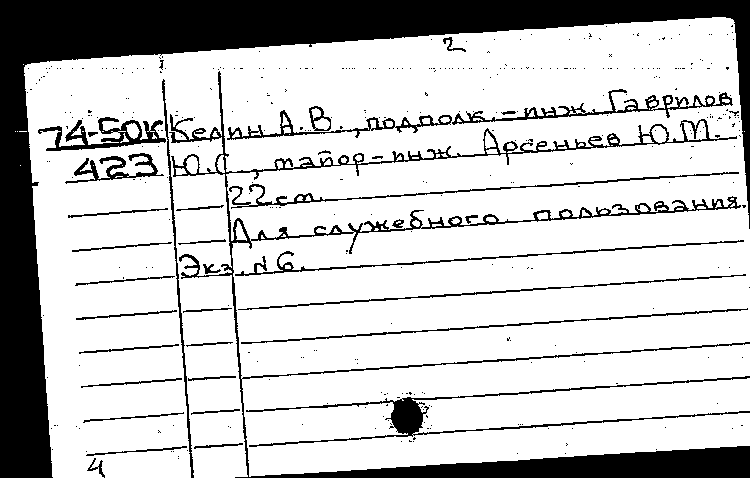 2
74-50К Келин А.В., подполк.-инж. Гаврилов
423 Ю.С., майор-инж. Арсеньев Ю.М.
22 см.
Для служебного пользования.
Экз. N 6.
4